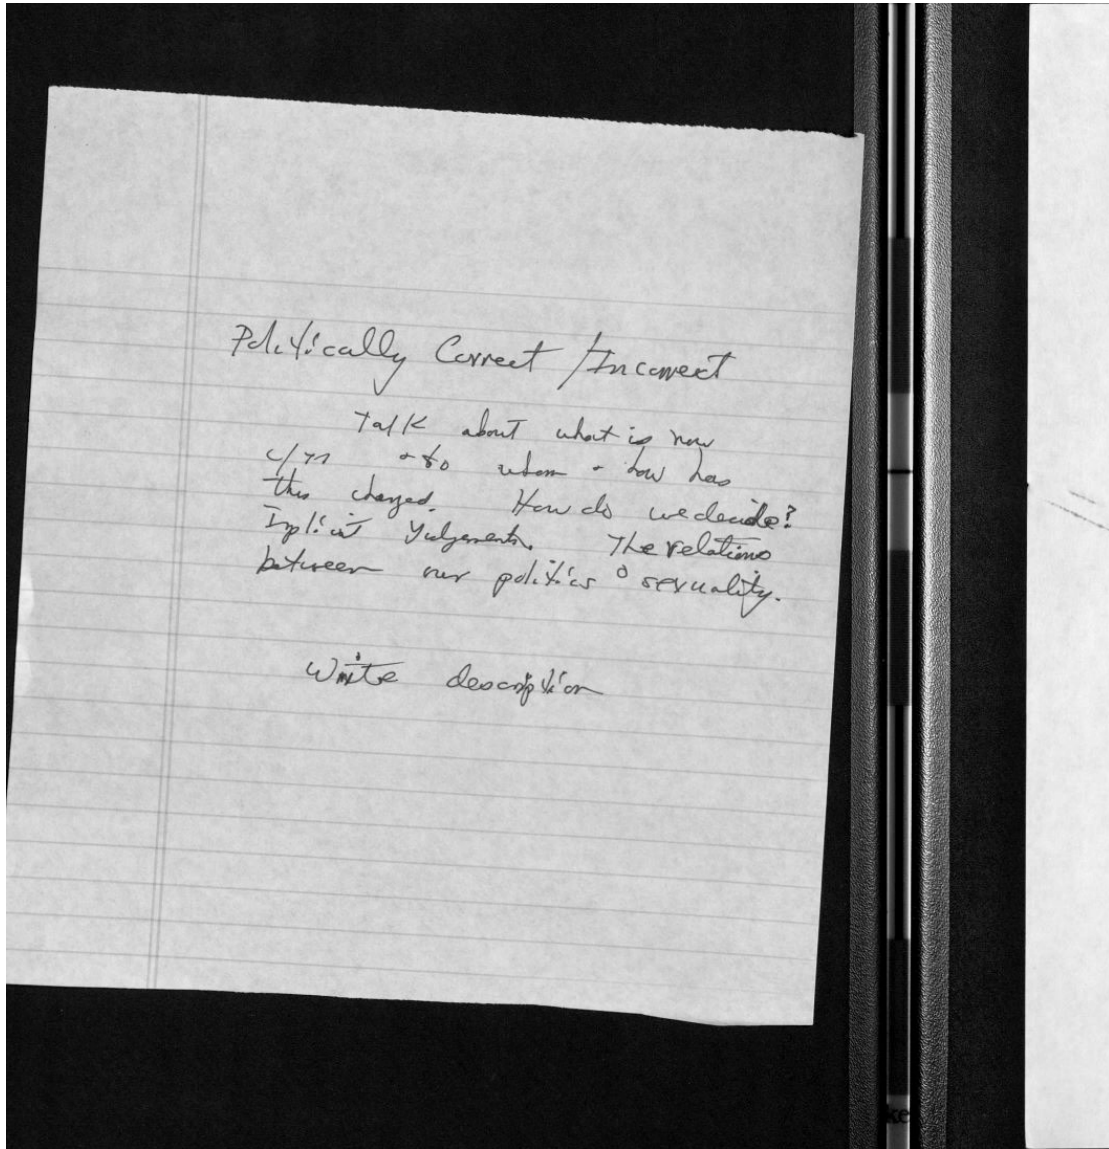 Politically Correct / Incorrect
Talk about what is now
+ to whom + how has
this changed. How do we decide?
Implicit Judgements. The relations
between our politics & sexuality.
Write description
ke